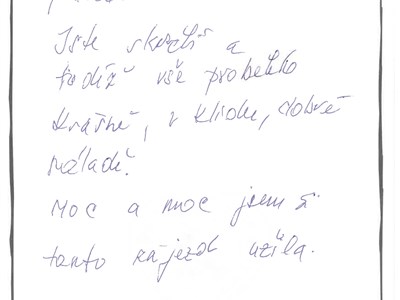 Jste skvělí a
tudíž vše proběhlo
krásně, v klidu, dobré
náladě.
Moc a moc jsem si
tento zájezd užila.